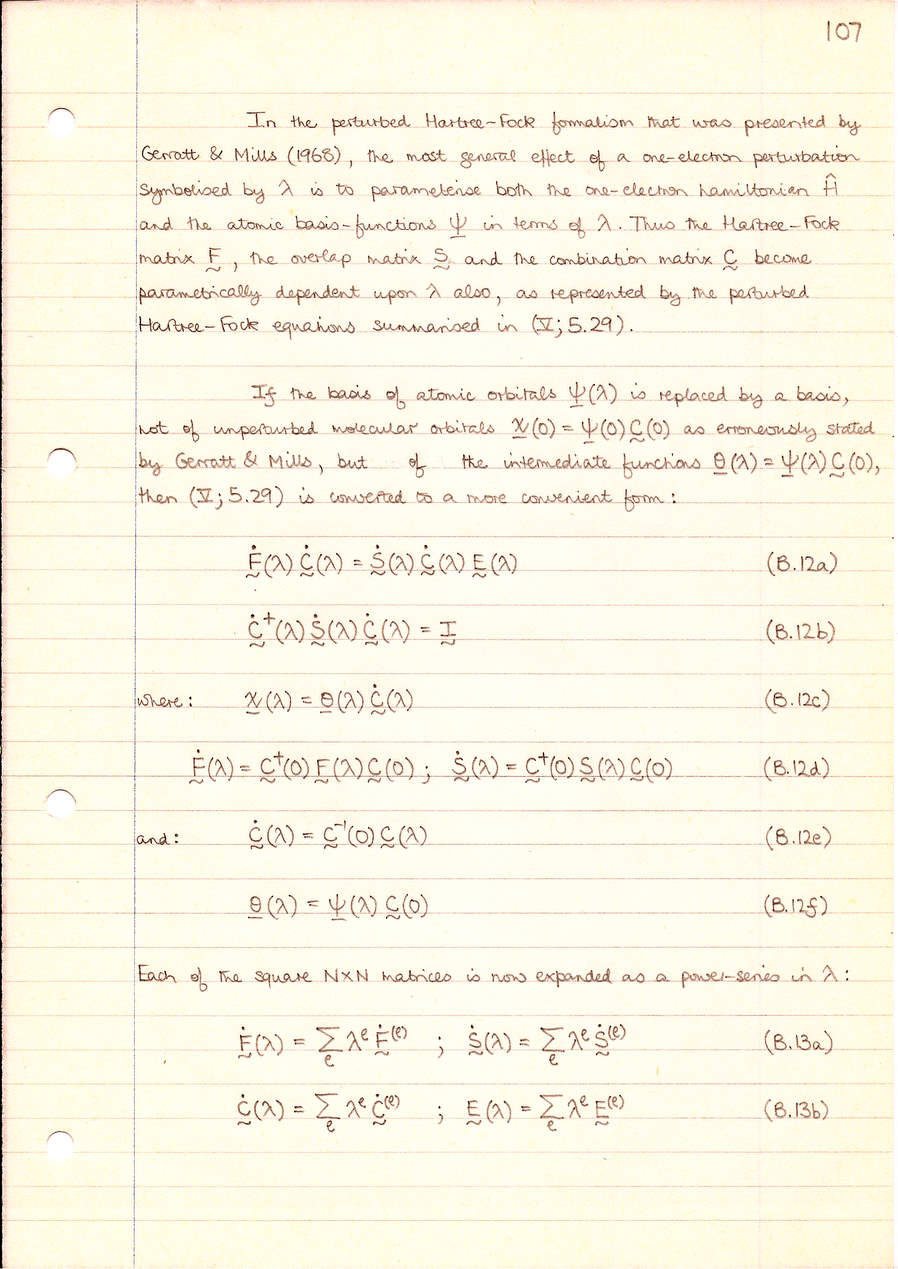 107
In the perturbed Hartree-Fock formalism that was presented by
Gerratt & Mills (1968), the most general effect of a one-electron perturbation
symbolised by λ is to parameterise both the one-electron hamiltonian Ĥ
and the atomic basis-functions Ψ in terms of λ. Thus the Hartree-Fock
matrix F, the overlap matrix S and the combination matrix C become
parametrically dependent upon λ also, as represented by the perturbed
Hartree-Fock equations summarised in (V; 5.29).
If the basis of atomic orbitals Ψ(λ) is replaced by a basis,
not of unperturbed molecular orbitals χ(0) = Ψ(0) C(0) as erroneously stated
by Gerratt & Mills, but of the intermediate functions θ(λ) = Ψ(λ) C(0),
then (V; 5.29) is converted to a more convenient form:
Ḟ(λ) Ċ(λ) = Ṡ(λ) Ċ(λ) E(λ) (B.12a)
Ċ⁺(λ) Ṡ(λ) Ċ(λ) = I (B.12b)
where: χ(λ) = θ(λ) Ċ(λ) (B.12c)
Ḟ(λ) = C⁺(0) F(λ) C(0) ; Ṡ(λ) = C⁺(0) S(λ) C(0) (B.12d)
and: Ċ(λ) = C⁻¹(0) C(λ) (B.12e)
θ(λ) = Ψ(λ) C(0) (B.12f)
Each of the square N×N matrices is now expanded as a power-series in λ:
Ḟ(λ) = Σₑ λᵉ Ḟ⁽ᵉ⁾ ; Ṡ(λ) = Σₑ λᵉ Ṡ⁽ᵉ⁾ (B.13a)
Ċ(λ) = Σₑ λᵉ Ċ⁽ᵉ⁾ ; E(λ) = Σₑ λᵉ E⁽ᵉ⁾ (B.13b)